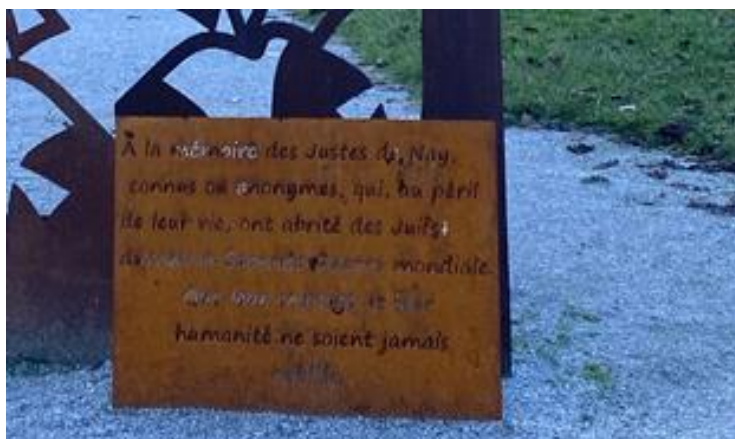 À la mémoire des Justes de Nay,
connus ou anonymes, qui, au péril
de leur vie, ont abrité des Juifs
mondiale.
humanité ne soient jamais